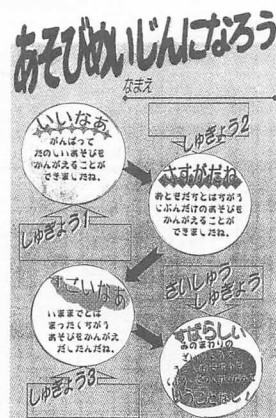 あそびめいじんになろう
なまえ
いいなあ
がんばって
たのしいあそびを
かんがえることが
できましたね。
しゅぎょう1
しゅぎょう2
さすがだね
おともだちとはちがう
じぶんだけのあそびを
かんがえることが
できましたね。
すごいなあ
いままでとは
まったくちがう
あそびをかんがえ
だしたんだね。
しゅぎょう3
さいしゅう
しゅぎょう
すばらしい
みのまわりの